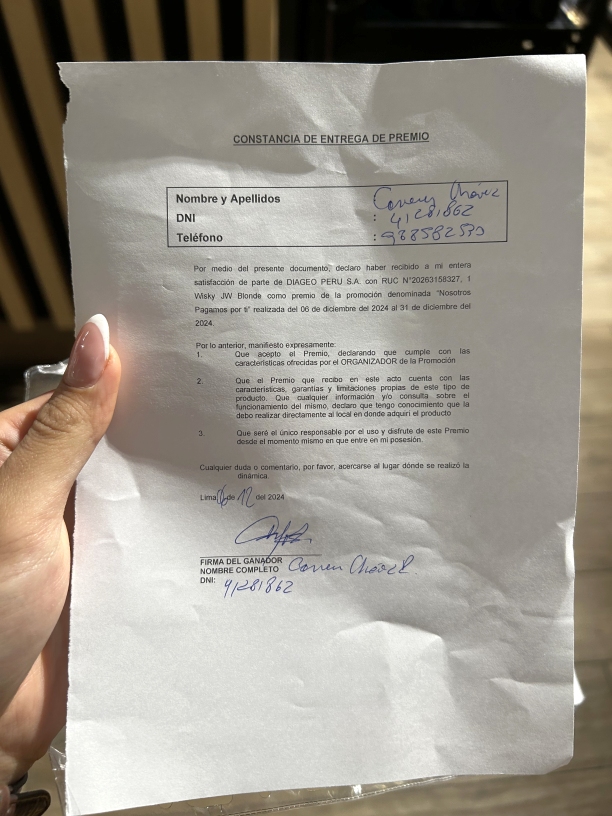 CONSTANCIA DE ENTREGA DE PREMIO
Nombre y Apellidos Carren Chávez
DNI : 41281862
Teléfono :
Por medio del presente documento, declaro haber recibido a mi entera
satisfacción de parte de DIAGEO PERU S.A. con RUC N°20263158327, 1
Wisky JW Blonde como premio de la promoción denominada "Nosotros
Pagamos por ti" realizada del 06 de diciembre del 2024 al 31 de diciembre del
2024.
Por lo anterior, manifiesto expresamente:
1. Que acepto el Premio, declarando que cumple con las
características ofrecidas por el ORGANIZADOR de la Promoción
2. Que el Premio que recibo en este acto cuenta con las
características, garantías y limitaciones propias de este tipo de
producto. Que cualquier información y/o consulta sobre el
funcionamiento del mismo, declaro que tengo conocimiento que la
debo realizar directamente al local en donde adquirí el producto
3. Que seré el único responsable por el uso y disfrute de este Premio
desde el momento mismo en que entre en mi posesión.
Cualquier duda o comentario, por favor, acercarse al lugar dónde se realizó la
dinámica.
Lima de 12 del 2024
FIRMA DEL GANADOR
NOMBRE COMPLETO Carren Chávez
DNI: 41281862